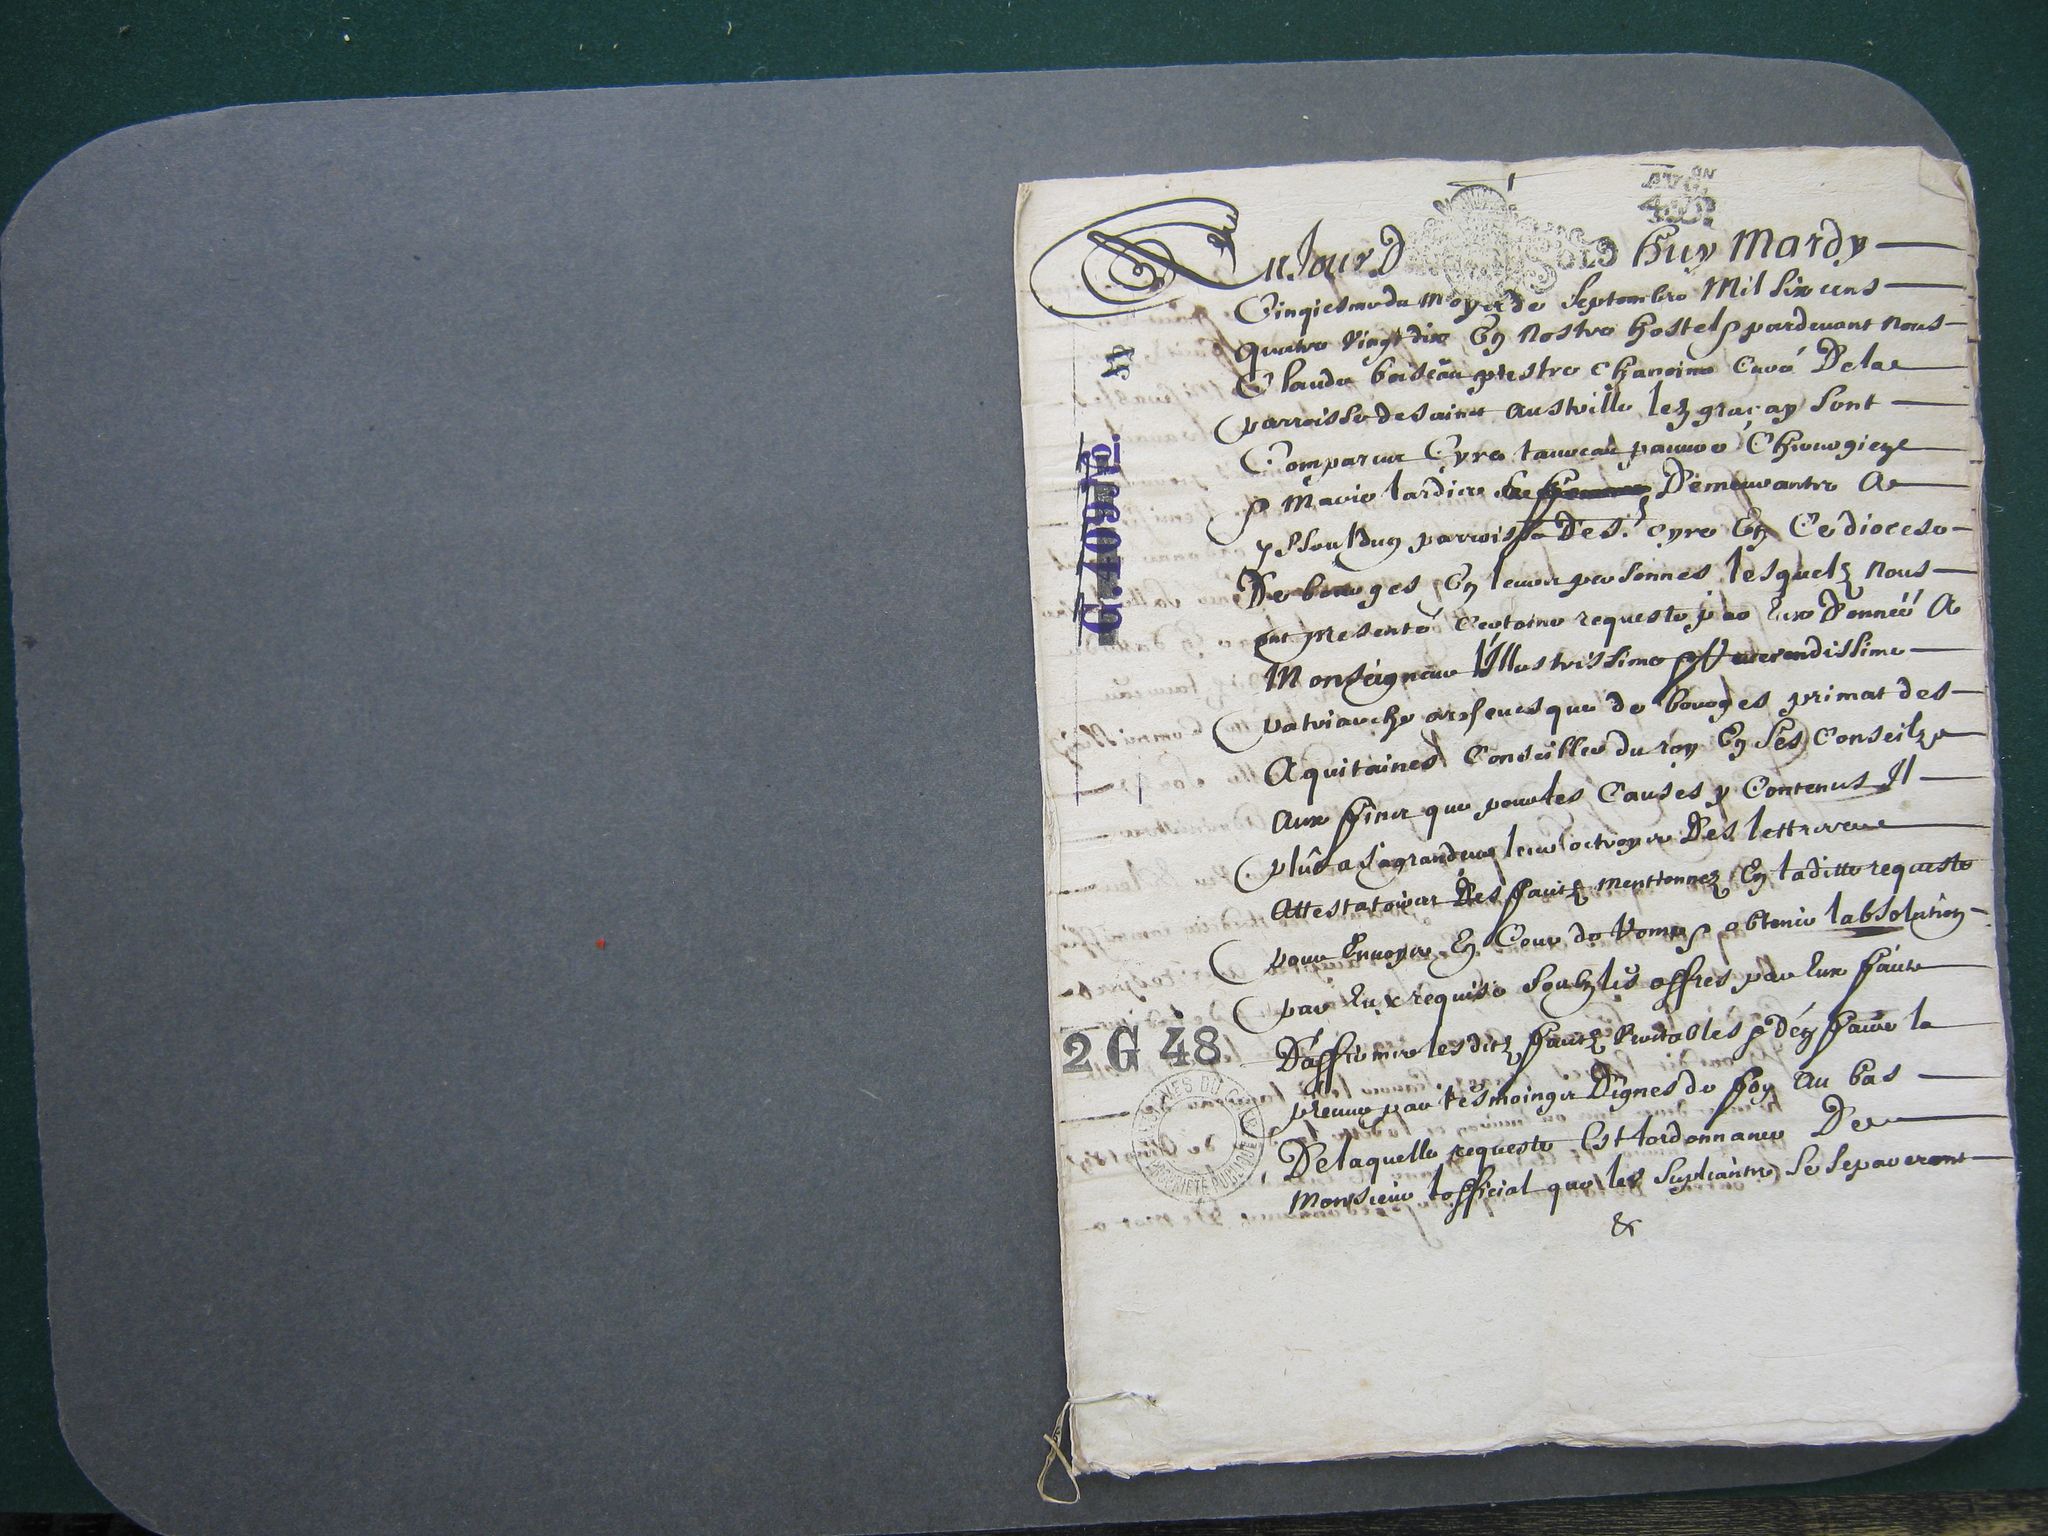 AVG.ON
4 SOLS
AuJourD huy Mardy
Cinqiesme du Moys de Septembre Mil Six cens
quatre Vingt dix En Nostre hostel & pardevant Nous
Claude boiseau prestre Chanoine Curé Dela
parroisse de Sainct austrille lez graçay Sont
Comparus Cyre taureau pauvre Chirurgien
& Marie tardier sa femme Demeurantz A
yssouldun parroisse De St. cyre En Ce diocese
De bourges En leurs personnes lesquelz Nous
ont presenté Certaine requeste par Eux Donnéé A
Monseigneur Illustrissime & Reverendissime
patriarche archevesque de bourges primat des
Aquitaines Conseiller du roy En Ses Conseilz
Aux fins que pour les Causes y Contenus Il
plût a Sa grandeur leur octroyer Des lettres
Attestatoires Des faitz mentionnez En laditte requeste
pour Envoyer En Cour de Rome & obtenir labsolution
par Eux requise Soubz les offres par Eux faite
Daffirmer lesditz faitz Veritables & D'en faire la
preuve par tesmoings Dignes de foy Au bas
Delaquelle requeste Est lordonnance De
Monsieur lofficial que les Supliantz Se Separeront
&
G. 109
2 G 48
ARCHIVES DU CHER
PROPRIÉTÉ PUBLIQUE